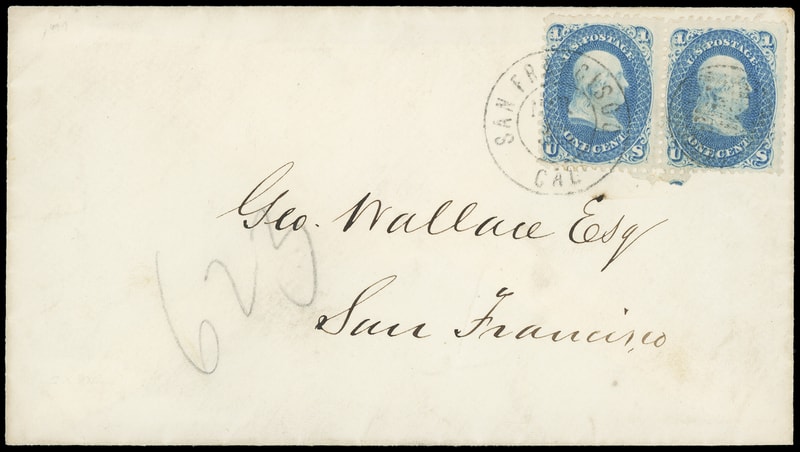 1 1
U.S. POSTAGE
ONE CENT
U S
1 1
U.S. POSTAGE
ONE CENT
U S
SAN FRANCISCO
CAL
Geo. Wallace Esq
San Francisco
623